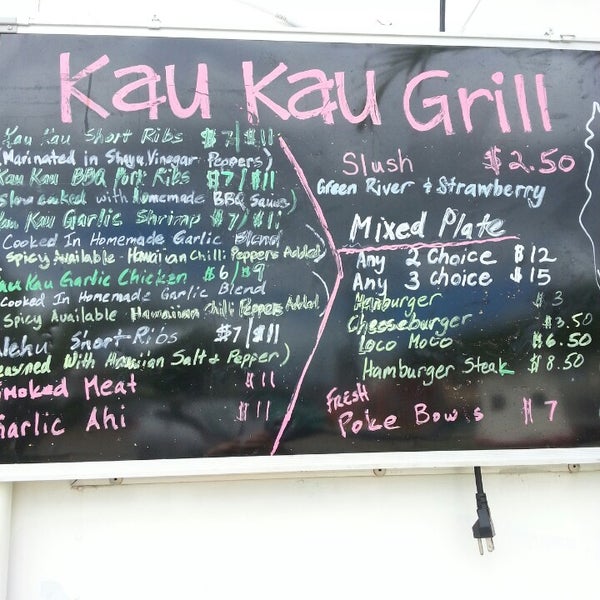 Kau Kau Grill
Kau Kau Short Ribs $7/$11
(Marinated in Shoyu, Vinegar Peppers)
Kau Kau BBQ Pork Ribs $7/$11
Slow cooked with Homemade BBQ Sauce)
Kau Kau Garlic Shrimp $7/$11
Cooked In Homemade Garlic Blend
Spicy Available - Hawaiian Chili Peppers Added
Kau Kau Garlic Chicken $6/$9
Cooked In Homemade Garlic Blend
Spicy Available Hawaiian Chili Peppers Added
Short Ribs $7/$11
Seasoned With Hawaiian Salt & Pepper)
Smoked Meat $11
Garlic Ahi $11
Slush $2.50
Green River & Strawberry
Mixed Plate
Any 2 Choice $12
Any 3 Choice $15
Hamburger $3
Cheeseburger $3.50
Loco Moco $6.50
Hamburger Steak $8.50
FRESH
Poke Bowls $7